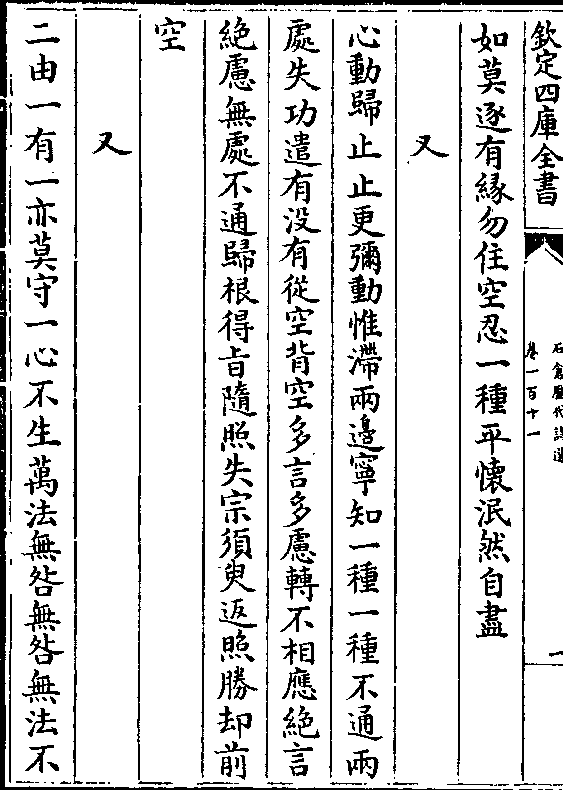 欽定四庫全書
石倉歷代詩選
卷一百十一
一
如莫逐有緣勿住空忍一種平懷泯然自盡
又
心動歸止止更彌動惟滯兩邊寧知一種一種不通兩
處失功遣有没有從空背空多言多慮轉不相應絶言
絶慮無處不通歸根得旨隨照失宗須臾返照勝却前
空
又
二由一有一亦莫守一心不生萬法無咎無咎無法不